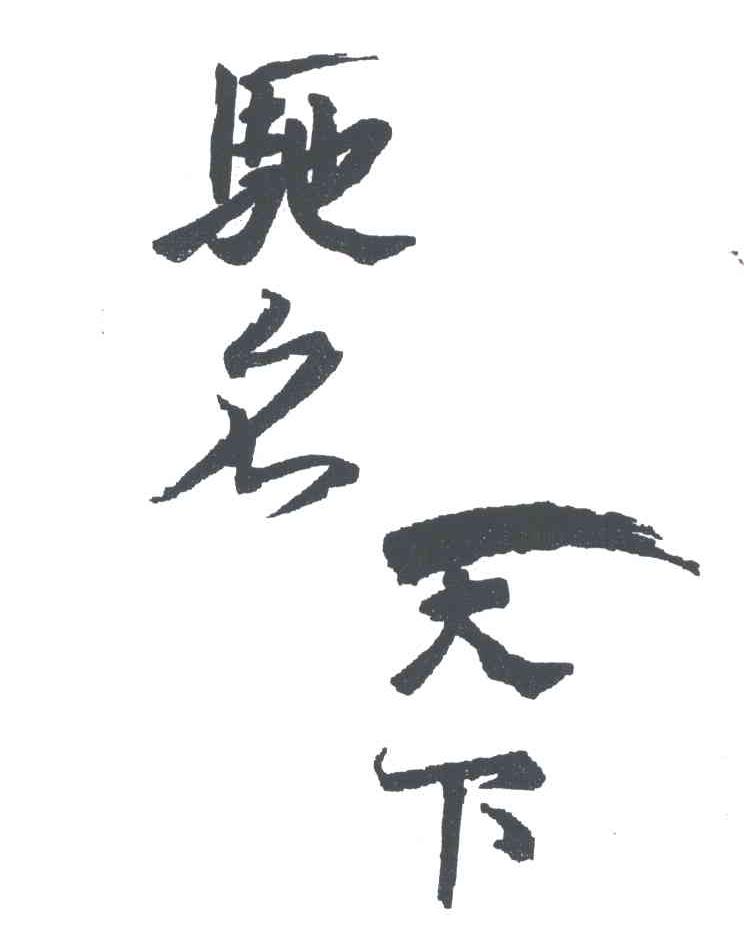 馳名
天下